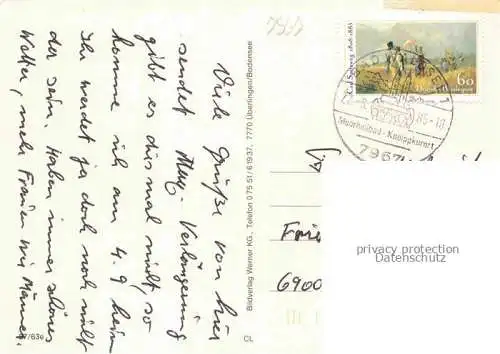 Viele Grüße von hier
sendet Verlängerung
gibt es diesmal nicht, so
komme ich am 4.9 heim
Ihr werdet ja doch noch nicht
da sein. Haben immer schönes
Wetter, mehr Frauen wie Männer.
37/63e
CL
Bildverlag Werner KG., Telefon 0 75 51 / 6 19 37, 7770 Überlingen/Bodensee
Carl Spitzweg 1808-1885
60
Deutsche Bundespost
85-18
Moorheilbad - Kneippkurort
7967
6900
privacy protection
Datenschutz